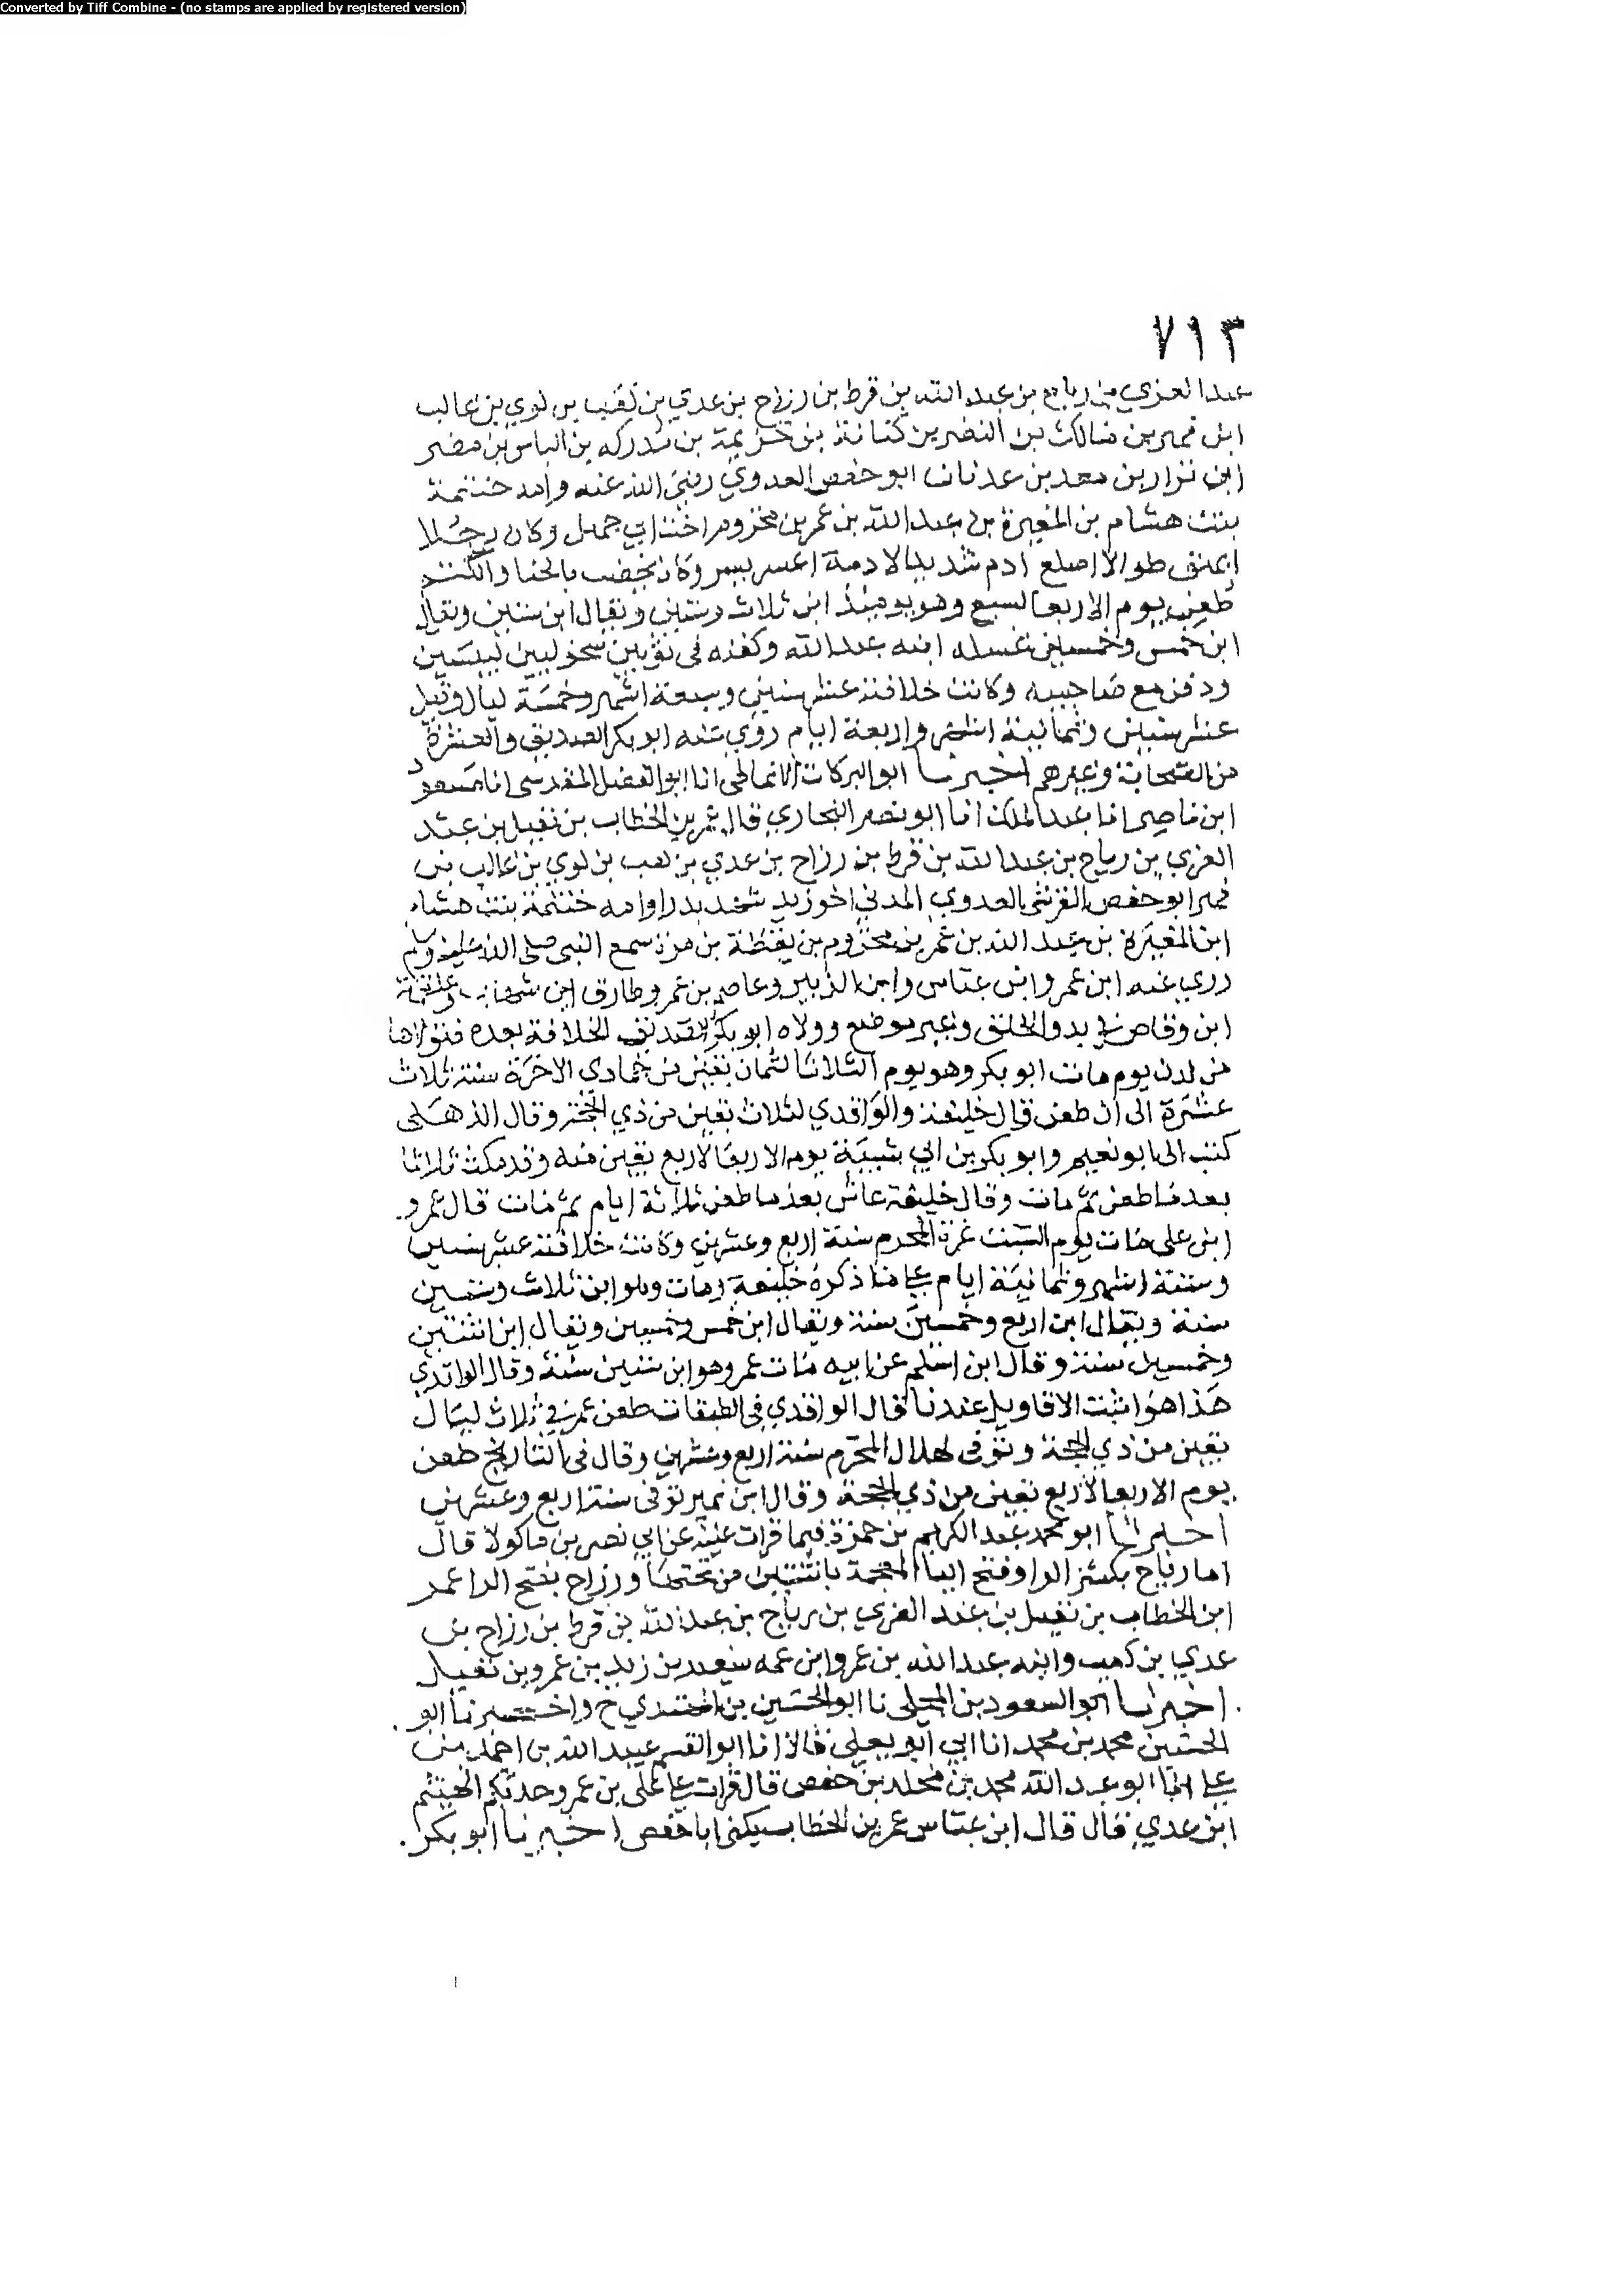 Converted by Tiff Combine - (no stamps are applied by registered version)
٧١٣
عبد العزي بن رياح بن عبد الله بن قرط بن رزاح بن عدي بن كعب بن لوي بن غالب
ابن فهر بن مالك بن النضر بن كنانة بن خزيمة بن مدركه بن الياس بن مضر
ابن نزار بن معد بن عدنان ابو حفص العدوي رضي الله عنه وامه حنتمة
بنت هشام بن المغيرة بن عبد الله بن عمر بن مخزوم اخت ابي جهل وكان رجلا
ايمنق طوالا اصلع ادم شديد الادمة اعسر يسر وكان يخضب بالحنا والكتم
طعن يوم الاربعا لسبع وهو يومئذ ابن ثلاث وستين ويقال ابن ستين ويقال
ابن خمس وخمسين غسله ابنه عبد الله وكفنه في ثوبين سحوليين لبيسين
ودفن مع صاحبيه وكانت خلافته عشر سنين وسبعة اشهر وخمسة ليال وقيل
عشر سنين وثمانية اشهر واربعة ايام روي عنه ابو بكر الصديق والعشرة
من الصحابة وغيرهم اخبرنا ابو البركات الانماطي انا ابو الفضل المقدسي انا مسعود
ابن ناصر انا عبد الملك انا ابو نصر البخاري قال عمر بن الخطاب بن نفيل بن عبد
العزي بن رياح بن عبد الله بن قرط بن رزاح بن عدي بن كعب بن لوي بن غالب بن
فهر ابو حفص القرشي العدوي المدني اخو زيد شهد بدرا وامه حنتمة بنت هشام
ابن المغيرة بن عبد الله بن عمر بن مخزوم بن يقظة بن مرة سمع النبي صلى الله عليه وسلم
روي عنه ابن عمر وابن عباس وابن الزبير وعاصم بن عمر وطارق ابن شهاب وعلقمة
ابن وقاص في بدو الخلق وغير موضع وولاه ابو بكر الصديق الخلافة بعده فتولاها
من لدن يوم مات ابو بكر وهو يوم الثلاثا لثمان بقين من جمادى الاخرة سنة ثلاث
عشرة الى ان طعن قال خليفة والواقدي لثلاث بقين من ذي الحجة وقال الذهلي
كتب الي ابو نعيم وابو بكر بن ابي شيبة يوم الاربعا لاربع بقين منه وقد مكث ثلاثا
بعد ما طعن ثم مات وقال خليفة عاش بعد ما طعن ثلاثة ايام ثم مات قال عمرو
ابن علي مات يوم السبت غرة المحرم سنة اربع وعشرين وكانت خلافته عشر سنين
وستة اشهر وثمانية ايام على ما ذكره خليفة ومات وهو ابن ثلاث وستين
سنة ويقال ابن اربع وخمسين سنة ويقال ابن خمس وخمسين ويقال ابن اثنتين
وخمسين سنة وقال ابن اسلم عن ابيه مات عمر وهو ابن ستين سنة وقال الواقدي
هذا هو اثبت الاقاويل عندنا قال الواقدي في الطبقات طعن عمر في ثلاث ليال
بقين من ذي الحجة وتوفي لهلال المحرم سنة اربع وعشرين وقال في التاريخ طعن
يوم الاربعا لاربع بقين من ذي الحجة وقال ابن نمير توفي سنة اربع وعشرين
اخبرنا ابو محمد عبد الكريم بن حمزة فيما قرات عليه عن ابي نصر بن ماكولا قال
اما رياح بكسر الرا وفتح اليا المعجمة باثنتين من تحتها ورزاح بفتح الرا عمر
ابن الخطاب بن نفيل بن عبد العزي بن رياح بن عبد الله بن قرط بن رزاح بن
عدي بن كعب وابنه عبد الله بن عمر وابن عمه سعيد بن زيد بن عمرو بن نفيل
اخبرنا ابو السعود بن المجلي نا ابو الحسين بن المهتدي ح واخبرنا ابو
الحسين محمد بن محمد انا ابي ابو يعلى قالا انا ابو القسم عبيد الله بن احمد بن
علي انا ابو عبد الله محمد بن مخلد بن حفص قال قرات على علي بن عمرو حدثكم الهيثم
ابن عدي قال قال ابن عباس عمر بن الخطاب يكنى ابا حفص اخبرنا ابو بكر